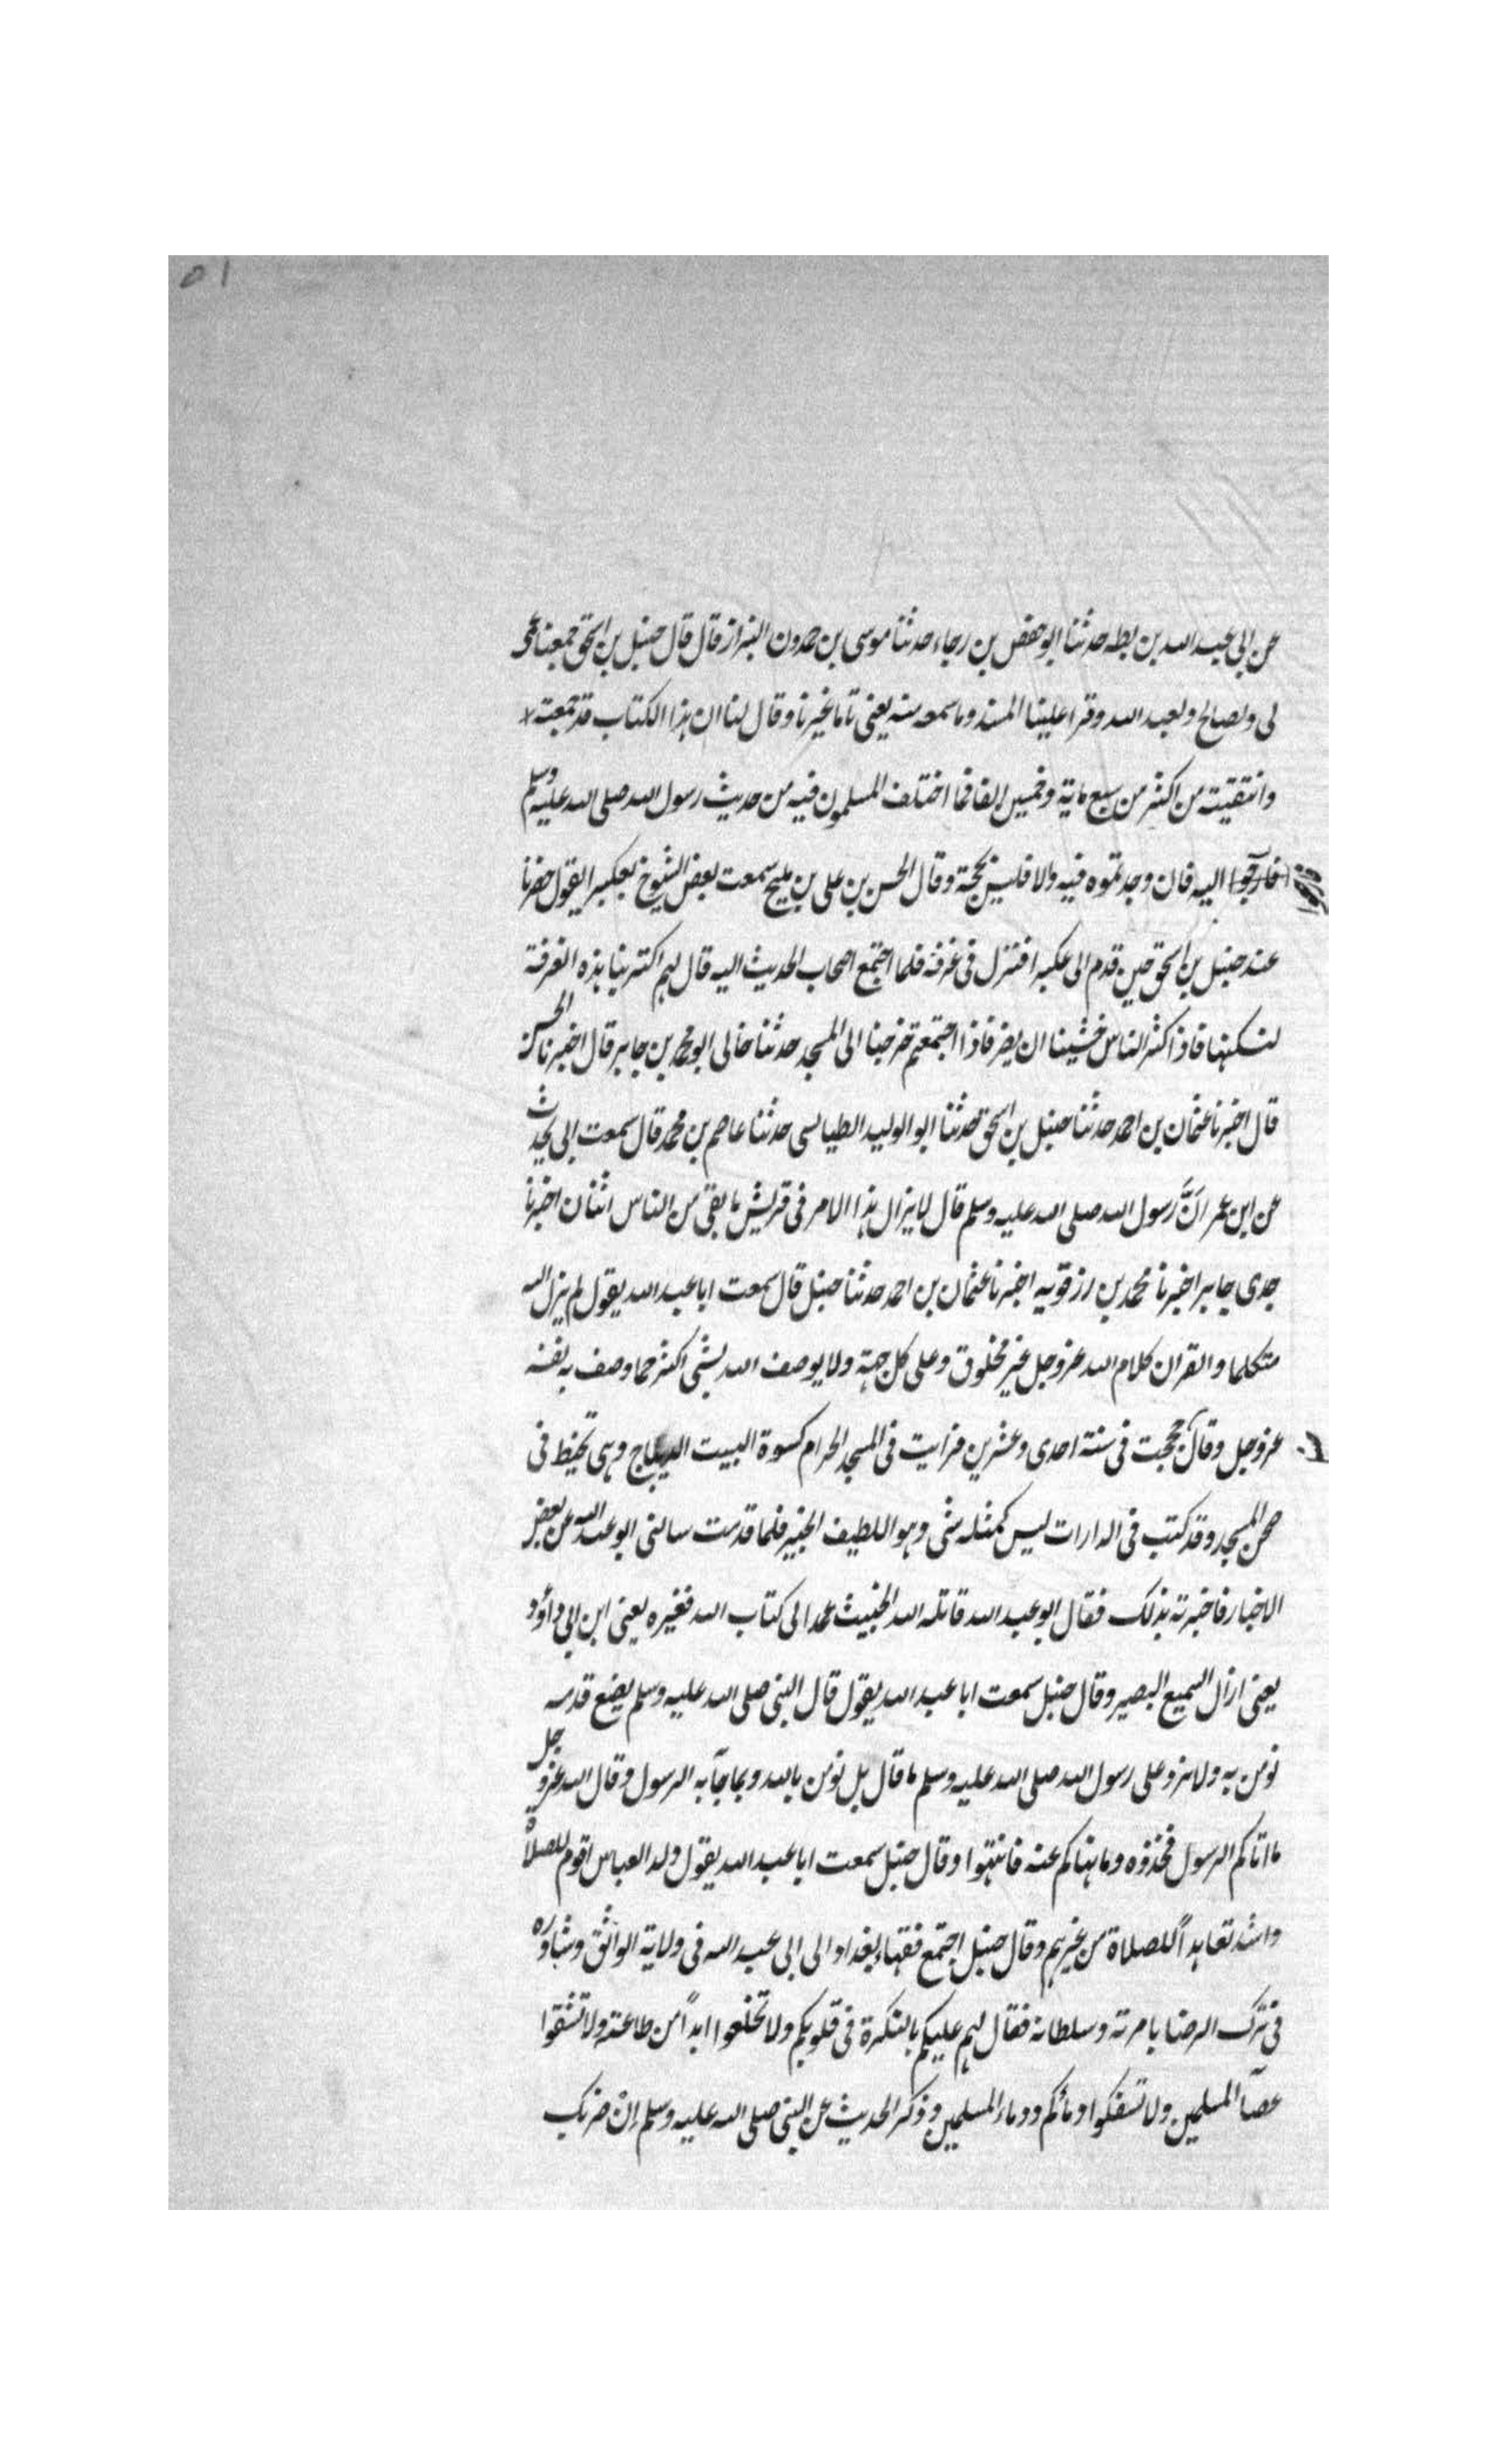 ٥١
عن ابى عبد الله بن بطه حدثنا ابو حفص بن رجاء حدثنا موسى بن حمدون البزاز قال قال حنبل بن اسحق جمعنا عمى
لى ولصالح ولعبد الله وقرا علينا المسند وما سمعه منه يعنى تاما غيرنا وقال لنا ان هذا الكتاب قد جمعته
وانتقيته من اكثر من سبع ماية وخمسين الفا فما اختلف المسلمون فيه من حديث رسول الله صلى الله عليه وسلم
فارجعوا اليه فان وجدتموه فيه والا فليس بحجة وقال الحسن بن على بن مليح سمعت بعض الشيوخ بعكبرا يقول حضرنا
عند حنبل بن اسحق حين قدم الى عكبرا فنزل فى غرفة فلما اجتمع اصحاب الحديث اليه قال لهم اكترينا هذه الغرفة
لنسكنها فاذا كثر الناس خشينا ان يضر فاذا اجتمعتم خرجنا الى المسجد حدثنا خالى ابو محمد بن جابر قال اخبرنا الحسن
قال اخبرنا عثمان بن احمد حدثنا حنبل بن اسحق حدثنا ابو الوليد الطيالسى حدثنا عاصم بن محمد قال سمعت ابى يحدث
عن ابن عمر انَّ رسول الله صلى الله عليه وسلم قال لا يزال هذا الامر فى قريش ما بقى من الناس اثنان اخبرنا
جدى جابر اخبرنا محمد بن رزقويه اخبرنا عثمان بن احمد حدثنا حنبل قال سمعت ابا عبد الله يقول لم يزل الله
متكلما والقران كلام الله عز وجل غير مخلوق وعلى كل جهة ولا يوصف الله بشى اكثر مما وصف به نفسه
عز وجل وقال حججت فى سنة احدى وعشرين فرايت فى المسجد الحرام كسوة البيت الديباج وهى تخيط فى
صحن المسجد وقد كتب فى الدارات ليس كمثله شى وهو اللطيف الخبير فلما قدمت سالنى ابو عبد الله عن بعض
الاخبار فاخبرته بذلك فقال ابو عبد الله قاتله الله الخبيث عمد الى كتاب الله فغيره يعنى ابن ابى داؤد
يعنى ازال السميع البصير وقال حنبل سمعت ابا عبد الله يقول قال النبى صلى الله عليه وسلم يضع قدمه
نومن به ولا نرد على رسول الله صلى الله عليه وسلم ما قال بل نومن بالله وبما جآ به الرسول وقال الله عز وجل
ما اتاكم الرسول فخذوه وما نهاكم عنه فانتهوا وقال حنبل سمعت ابا عبد الله يقول ولد العباس اقوم للصلاة
واشد تعاهداً للصلاة من غيرهم وقال حنبل اجتمع فقهاء بغداد الى ابى عبد الله فى ولاية الواثق وشاوره
فى ترك الرضا بامرته وسلطانه فقال لهم عليكم بالنكرة فى قلوبكم ولا تخلعوا ابداً من طاعته ولا تشقوا
عصآ المسلمين ولا تسفكوا دمائكم ودماء المسلمين وذكر الحديث عن النبى صلى الله عليه وسلم إنْ ضربك